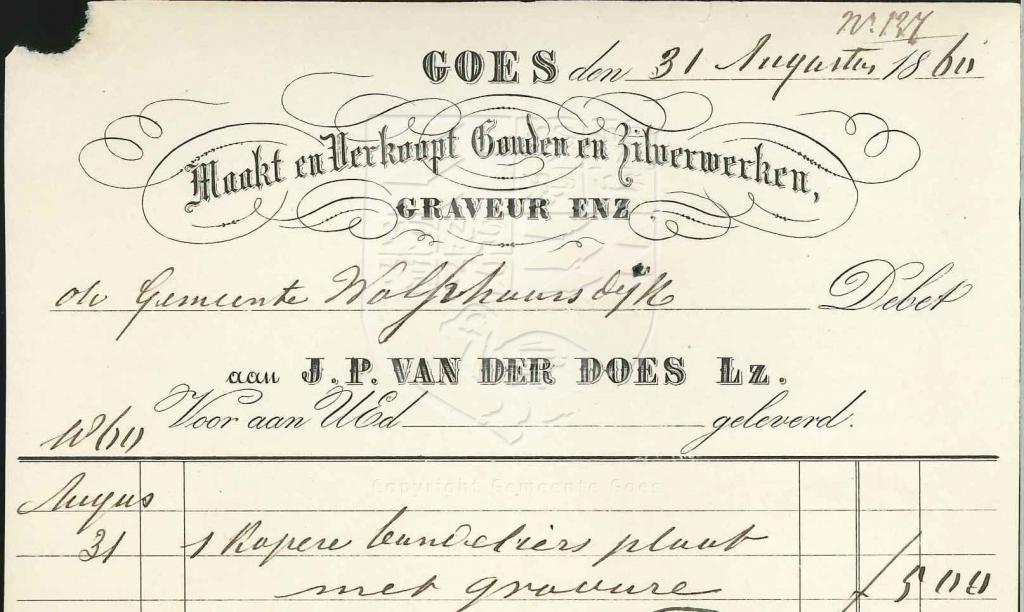 No. 127
GOES den 31 Augustus 1860
Maakt en Verkoopt Gouden en Zilverwerken,
GRAVEUR ENZ.
de Gemeente Wolphaarsdijk Debet
aan J. P. VAN DER DOES Lz.
Voor aan UEd geleverd.
1860
Copyright Gemeente Goes
Augus
31 1 Kopere bandeliers plaat
met gravure f 5 00